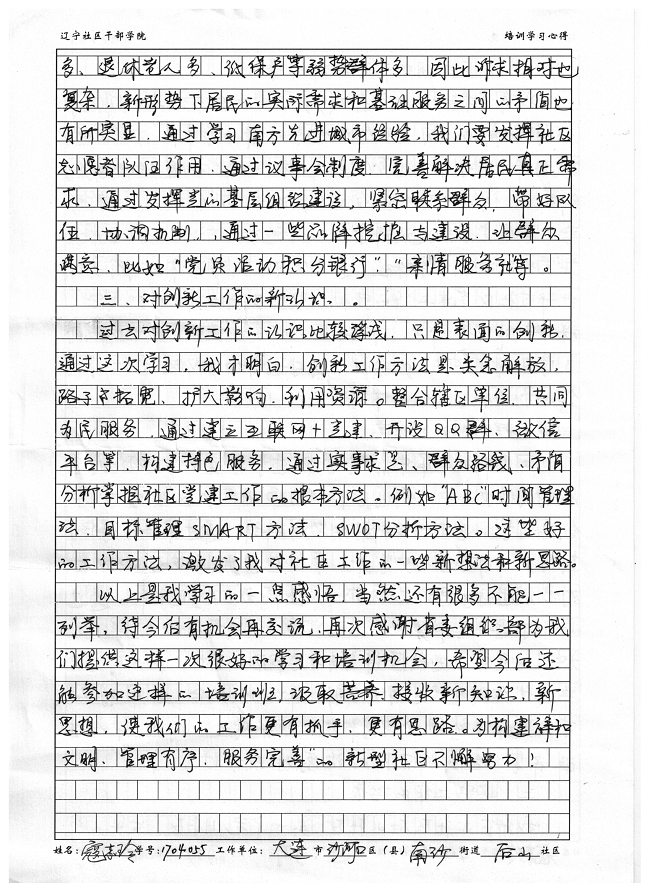 辽宁社区干部学院 培训学习心得
多、退休老人多、低保户等弱势群体多 因此诉求相对也
复杂，新形势下居民的实际需求和基础服务之间的矛盾也
有所突显，通过学习南方先进城市经验，我们要发挥社区
志愿者队伍作用，通过议事会制度 完善解决居民真正需
求，通过发挥党的基层组织建设，紧密联系群众，带好队
伍，协调机制，通过一些品牌挖掘与建设，让群众
满意，比如“党员活动积分银行”，“亲情服务站等。
三、对创新工作的新认识。
过去对创新工作的认识比较浅，只是表面的创新，
通过这次学习，我才明白，创新工作方法是 解放，
路子 拓宽，扩大影响，利用资源。整合辖区单位，共同
为民服务，通过建立互联网+党建，开设QQ群、微信
平台等，构建特色服务，通过实事求是、群众路线、矛盾
分析掌握社区党建工作的根本方法。例如“ABC”时间管理
法，目标管理SMART方法，SWOT分析方法。这些好
的工作方法，激发了我对社区工作的一些新想法和新思路。
以上是我学习的一点感悟，当然还有很多不能一一
列举，待今后有机会再交流，再次感谢省委组织部为我
们提供这样一次很好的学习和培训机会，希望今后还
能参加这样的培训班，汲取营养，接收新知识，新
思想，使我们的工作更有抓手，更有思路。为构建祥和
文明，管理有序，服务完善”的新型社区不懈努力！
姓名： 学号：1704055 工作单位：大连市沙河口区（县）南沙街道 后山社区